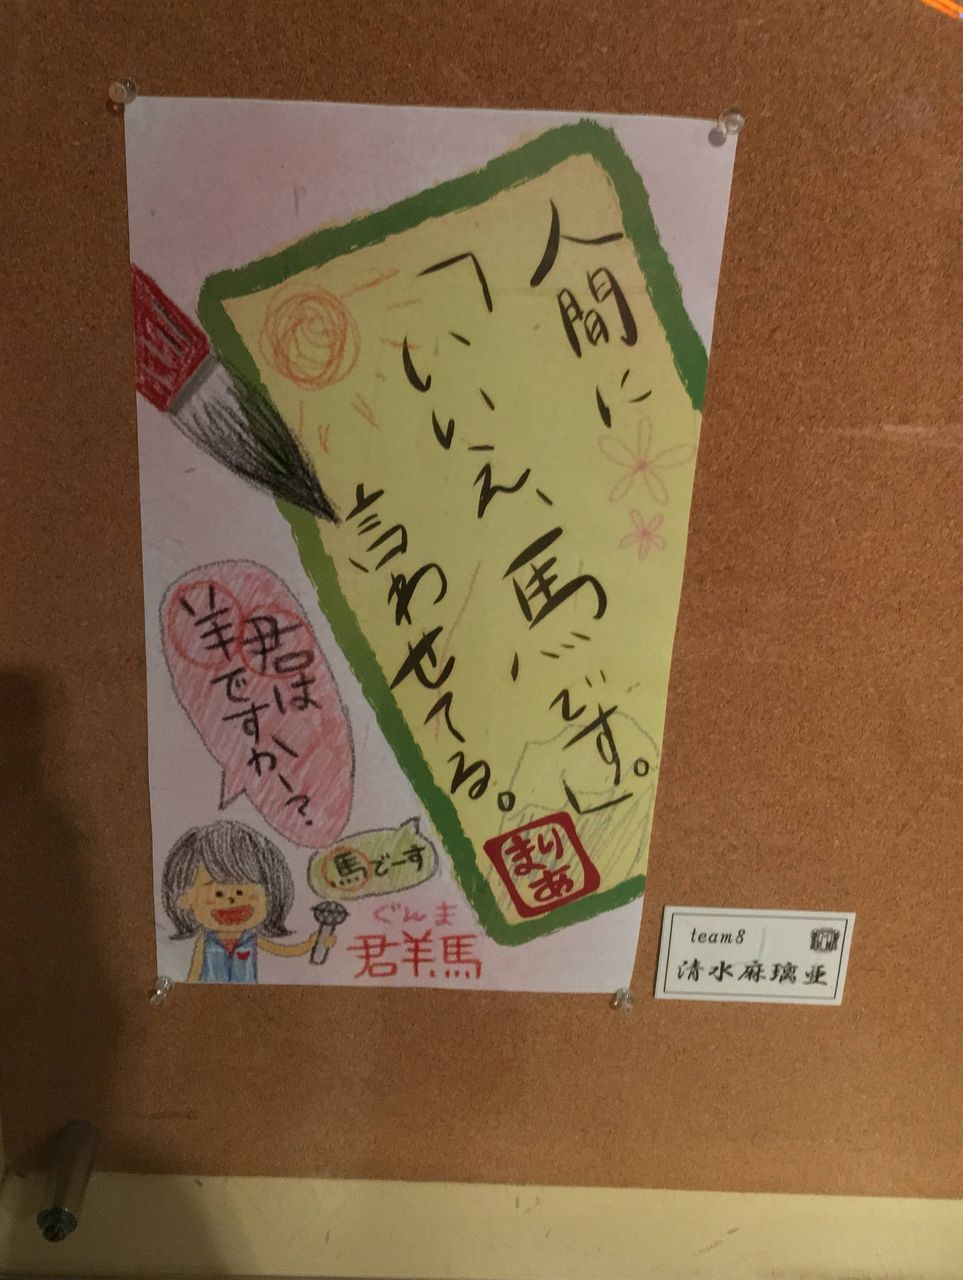 人間に
「いいえ、馬です。」
言わせてる。
まりあ
君は
羊ですか?
馬でーす
ぐんま
群馬
team8
清水麻璃亜